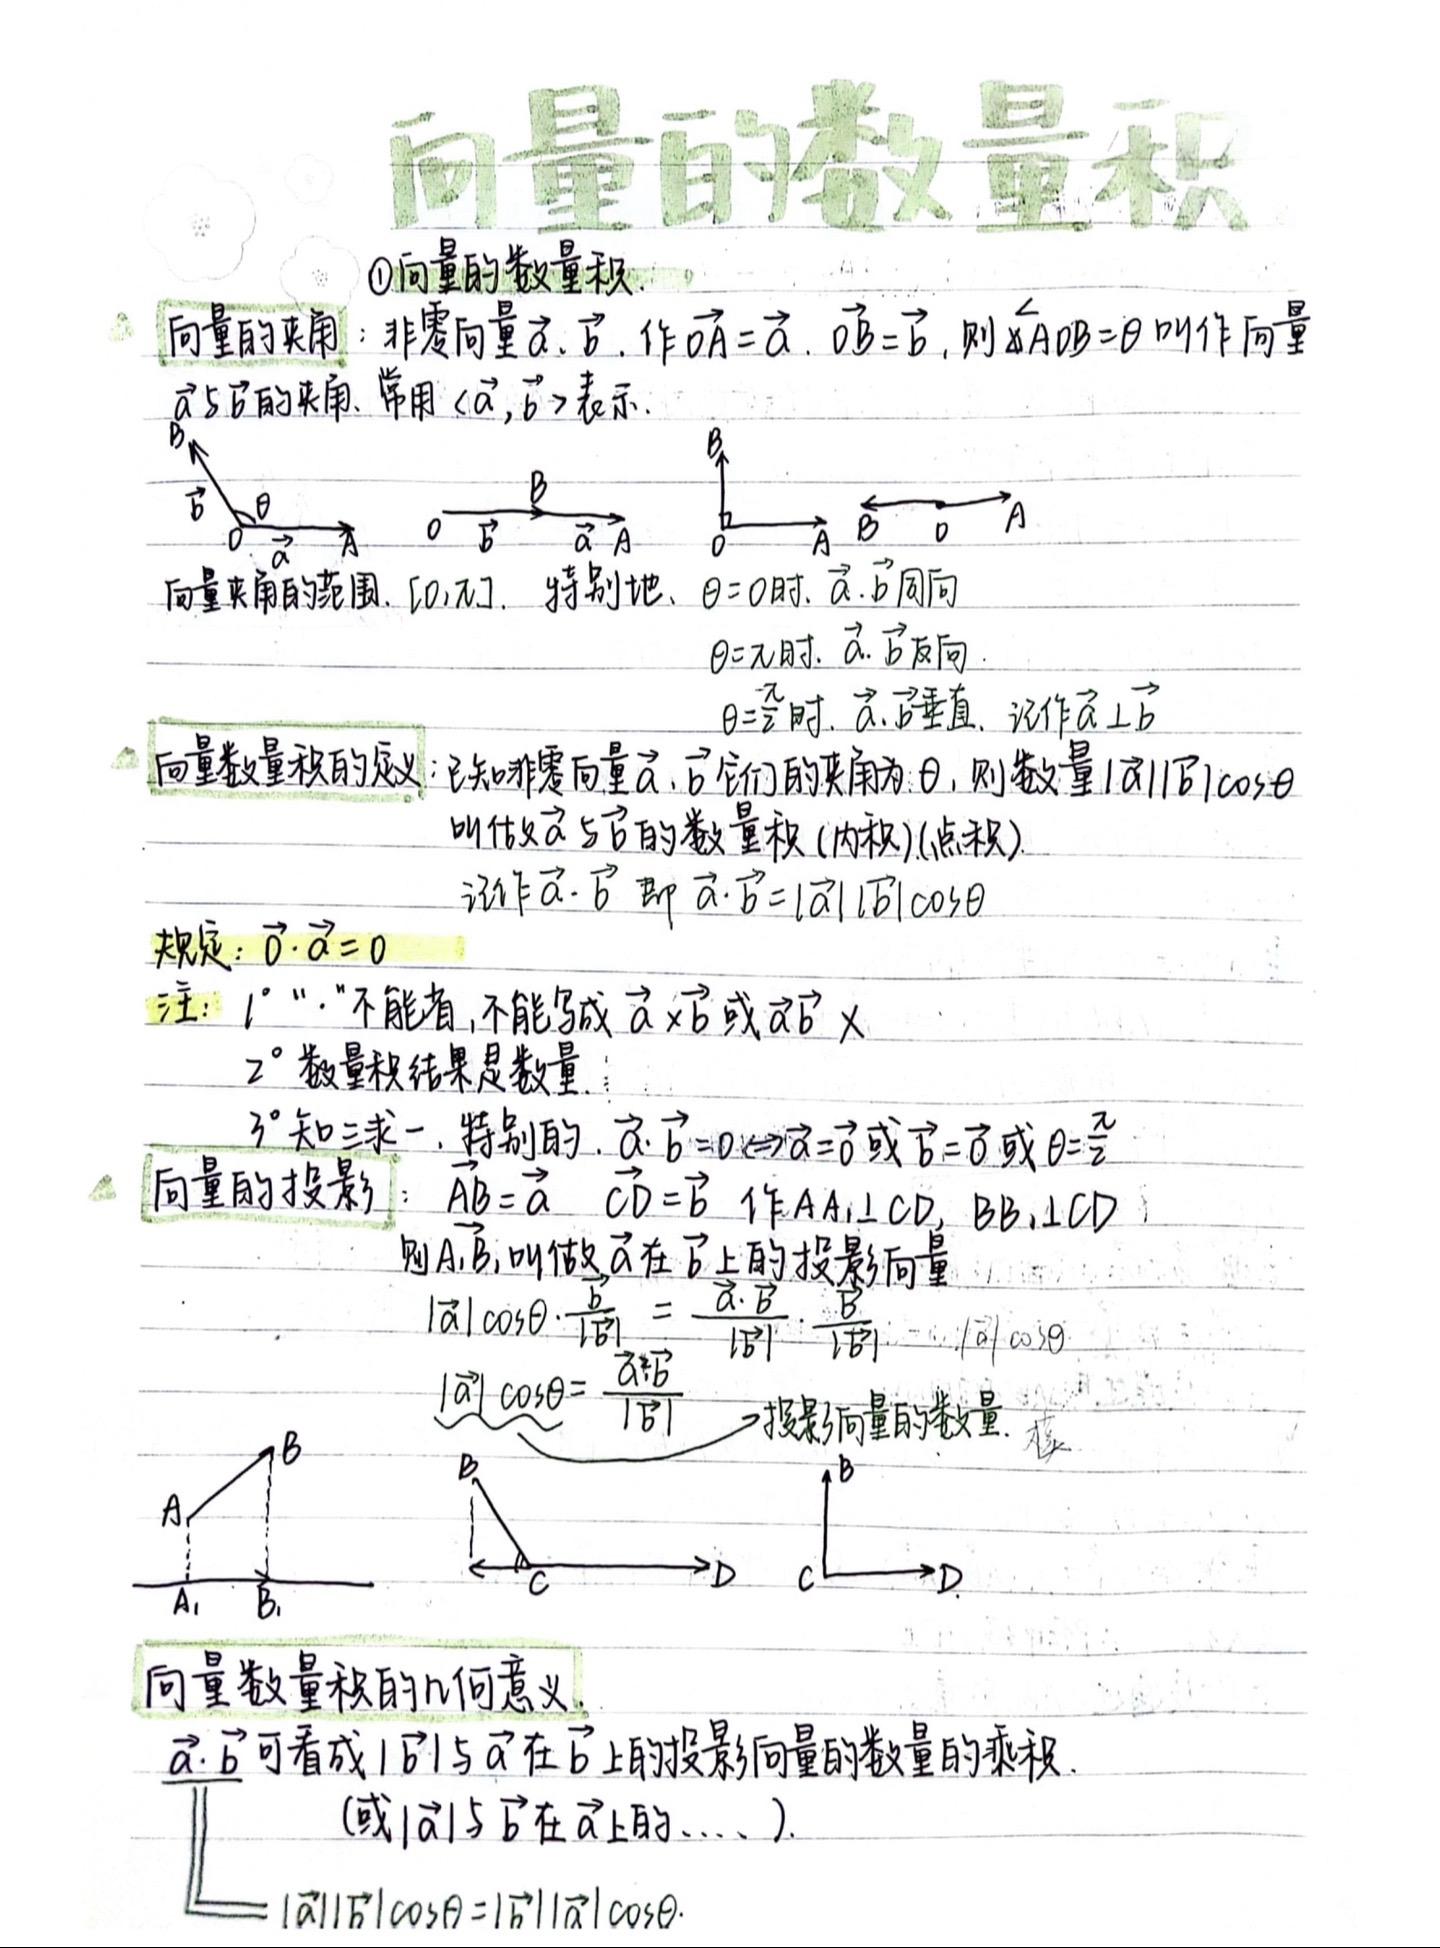 向量的数量积
①向量的数量积.
向量的夹角：非零向量a⃗、b⃗，作OA⃗=a⃗、OB⃗=b⃗，则∠AOB=θ叫作向量
a⃗与b⃗的夹角、常用<a⃗,b⃗>表示.
B b⃗ θ O a⃗ A
O b⃗ B a⃗ A
B O A
B O A
向量夹角的范围、[0,π]. 特别地、θ=0时、a⃗、b⃗同向
θ=π时、a⃗、b⃗反向.
θ=π/2时、a⃗、b⃗垂直、记作a⃗⊥b⃗
向量数量积的定义：已知非零向量a⃗、b⃗它们的夹角为θ，则数量|a⃗||b⃗|cosθ
叫做a⃗与b⃗的数量积(内积)(点积).
记作a⃗·b⃗ 即 a⃗·b⃗=|a⃗||b⃗|cosθ
规定：0⃗·a⃗=0
注：1° "·"不能省,不能写成 a⃗×b⃗或a⃗b⃗ ×
2° 数量积结果是数量.
3° 知三求一、特别的、a⃗·b⃗=0⇔a⃗=0⃗或b⃗=0⃗或θ=π/2
向量的投影： AB⃗=a⃗ CD⃗=b⃗ 作AA₁⊥CD, BB₁⊥CD
则A₁B₁⃗叫做a⃗在b⃗上的投影向量
|a⃗|cosθ·b⃗/|b⃗| = a⃗·b⃗/|b⃗|·b⃗/|b⃗| |a⃗|cosθ
|a⃗|cosθ=a⃗·b⃗/|b⃗| 投影向量的数量.
A B A₁ B₁
B C D
B C D
向量数量积的几何意义.
a⃗·b⃗可看成|b⃗|与a⃗在b⃗上的投影向量的数量的乘积.
(或|a⃗|与b⃗在a⃗上的....).
|a⃗||b⃗|cosθ=|b⃗||a⃗|cosθ.